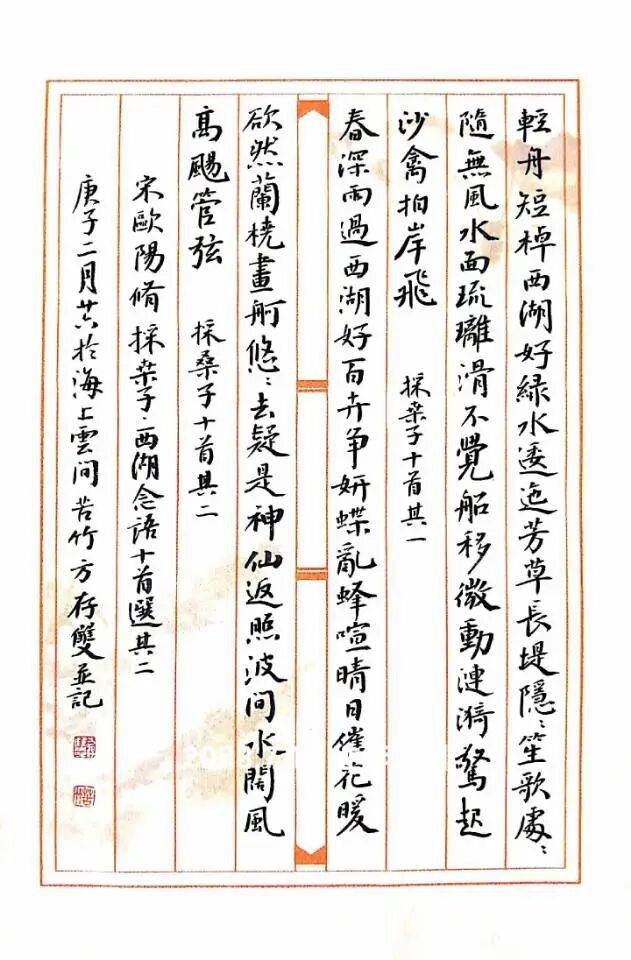 輕舟短棹西湖好綠水逶迤芳草長堤隱〻笙歌處〻
隨無風水面琉璃滑不覺船移微動漣漪驚起
沙禽拍岸飛
採桒子十首其一
春深雨過西湖好百卉争妍蝶亂蜂喧晴日催花暖
欲然蘭橈畫舸悠〻去疑是神仙返照波间水闊風
髙颺管弦
採桑子十首其二
宋歐陽脩採桒子·西湖念語十首選其二
庚子二月廿六於海上雲间苦竹方存雙並記